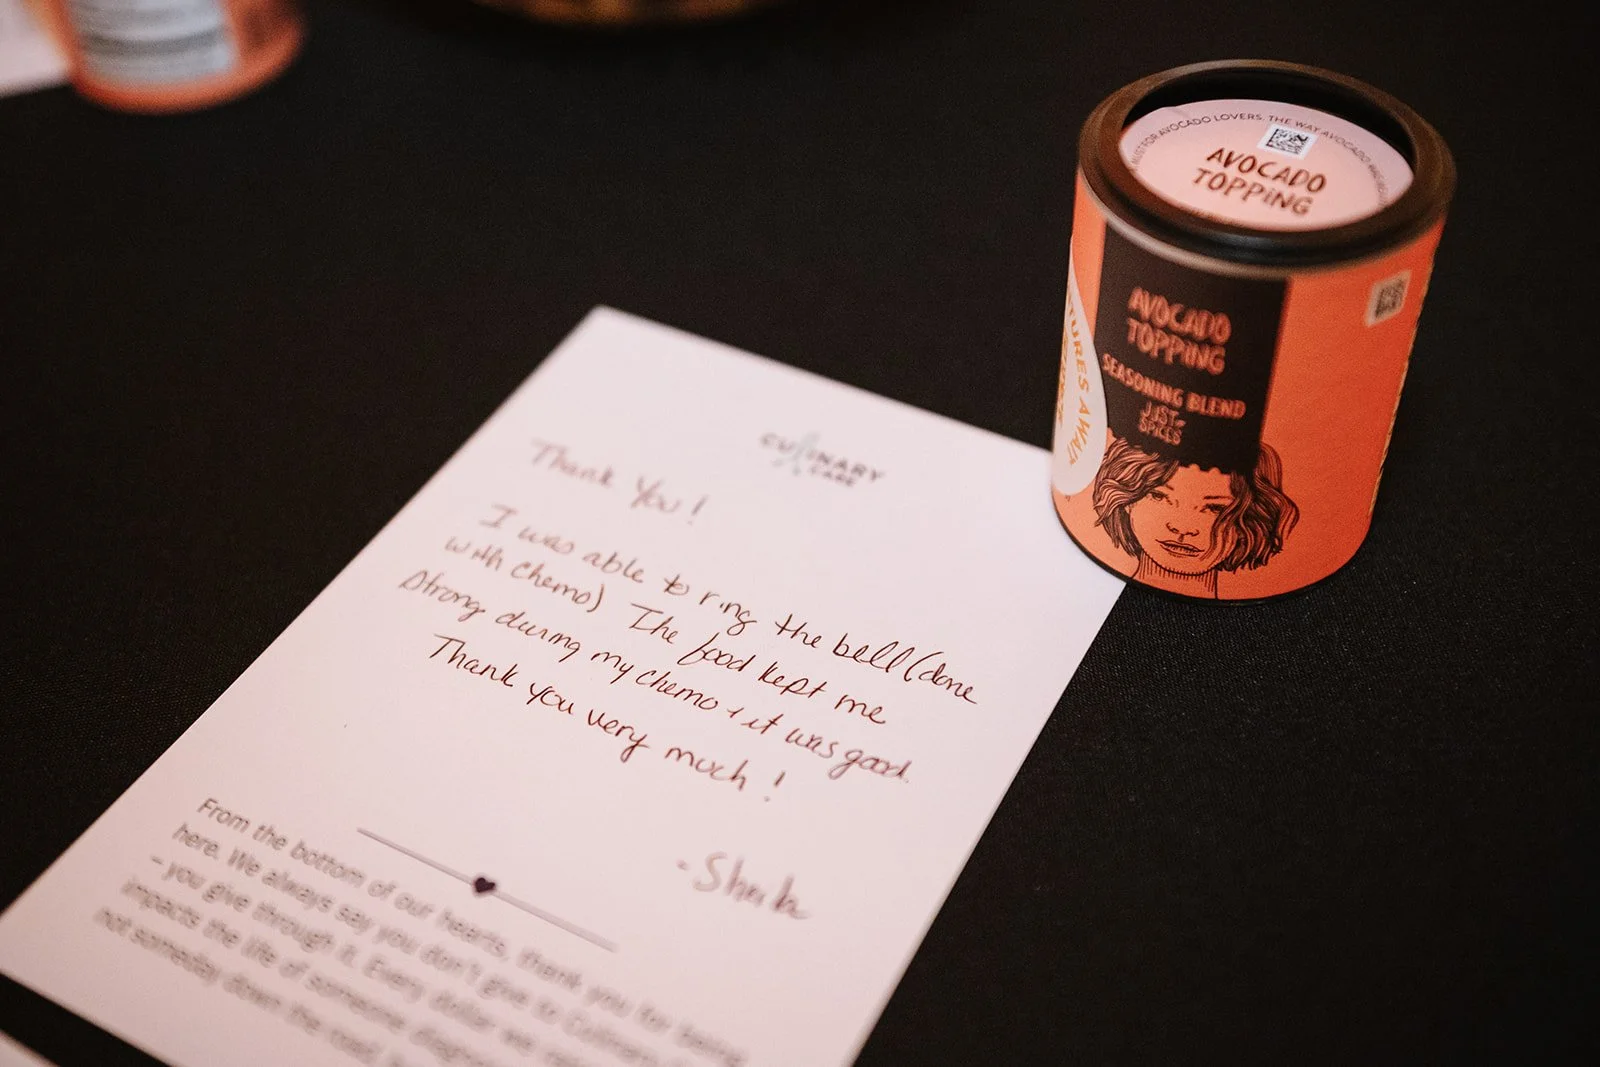 CULINARY
CARE
Thank You!
I was able to ring the bell (done
with chemo) The food kept me
strong during my chemo + it was good.
Thank you very much!
From the bottom of our hearts, thank you for being
here. We always say you don't give to Culinary
- you give through it. Every dollar we
impacts the life of someone
not someday down the road,
AVOCADO LOVERS. THE WAY AVOCADO
AVOCADO
TOPPING
AVOCADO
TOPPING
SEASONING BLEND
JUST
SPICES